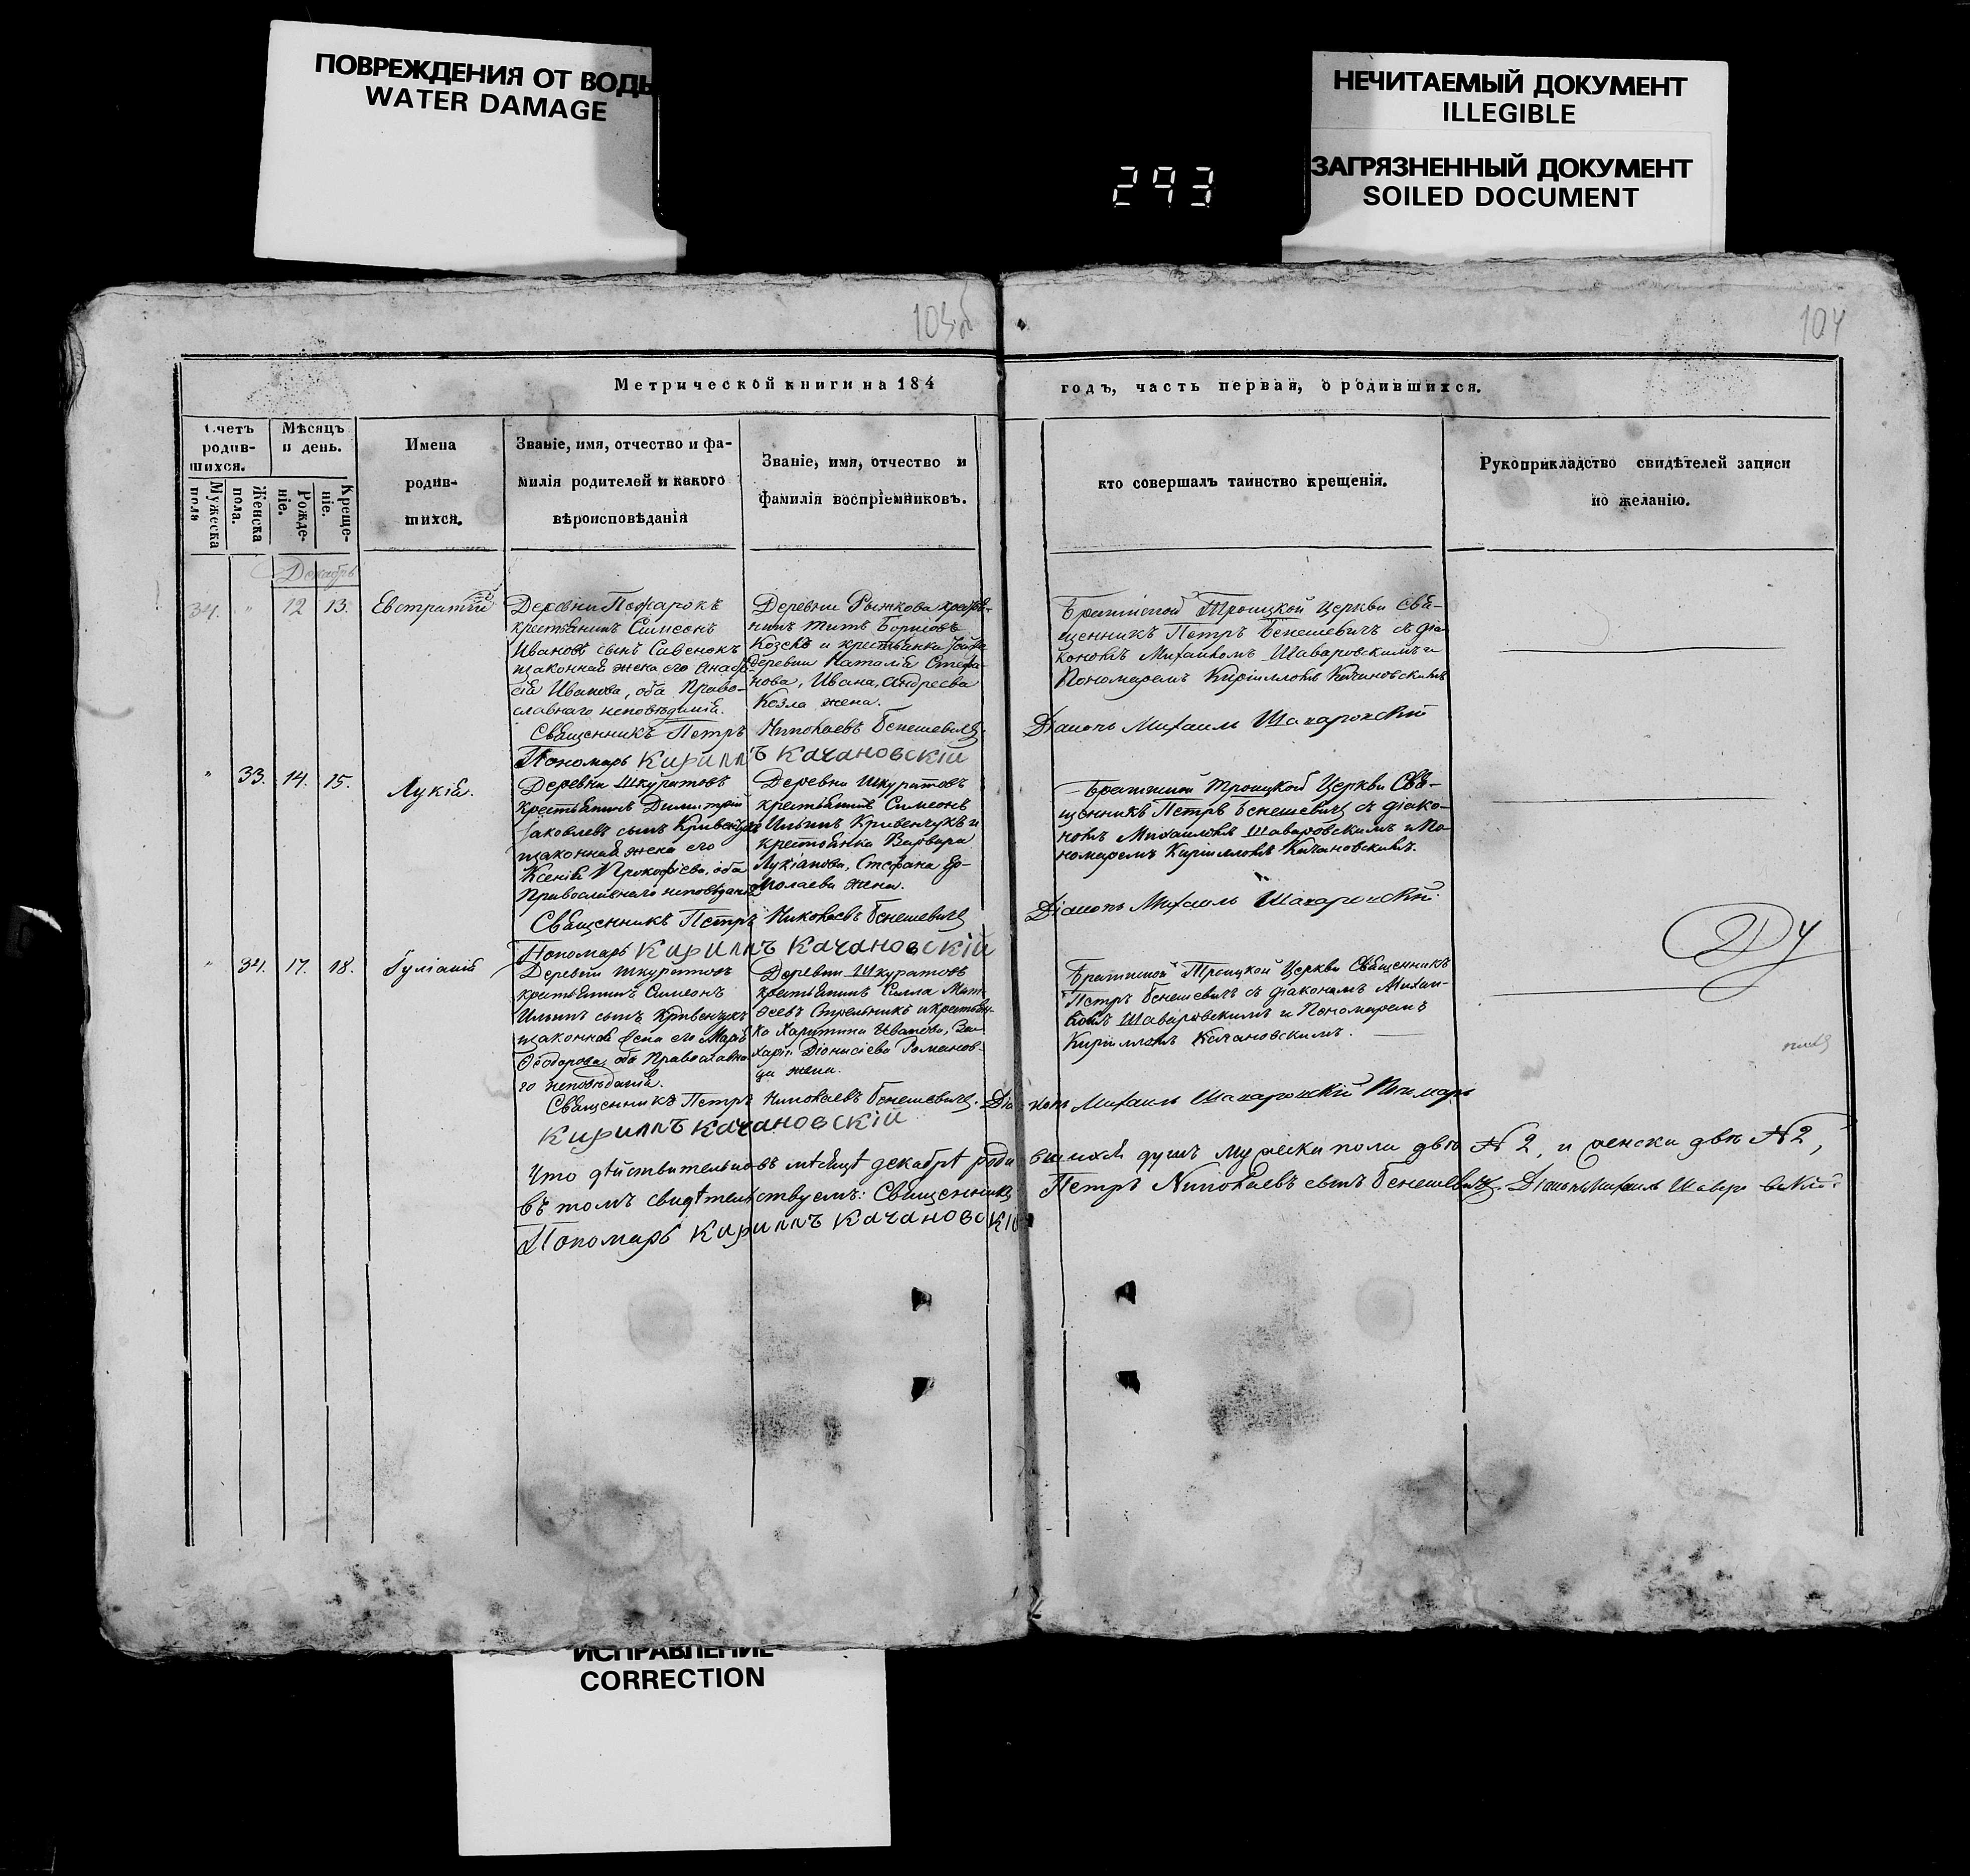 ПОВРЕЖДЕНИЯ ОТ ВОДЫ
WATER DAMAGE
НЕЧИТАЕМЫЙ ДОКУМЕНТ
ILLEGIBLE
ЗАГРЯЗНЕННЫЙ ДОКУМЕНТ
SOILED DOCUMENT
293
103об
104
Метрической книги на 184
годъ, часть первая, о родившихся.
Счетъ родив-шихся.
Мѣсяцъ и день.
Мужеска пола
Женска пола.
Рожде-ніе.
Креще-ніе.
Имена
родив-
шихся.
Званіе, имя, отчество и фа-
милія родителей и какого
вѣроисповѣданія
Званіе, имя, отчество и
фамилія воспріемниковъ.
кто совершалъ таинство крещенія.
Рукоприкладство свидѣтелей записи
по желанію.
Декабрь
34. " 12 13. Евстратій
Деревни Пожарокъ
крестьянинъ Симеонъ
Ивановъ сынъ Савенокъ
и законная жена его Анаста-
сія Иванова, оба Право-
славнаго исповѣданія.
Деревни Рыжкова крестья-
нинъ Титъ Борисовъ
Козелъ и крестьянка
деревни Наталія Стефа-
нова, Ивана Андреева
Козла жена.
Троицкой Церкви Свя-
щенникъ Петръ Бенешевичъ съ діа-
кономъ Михаиломъ Шаваровскимъ и
Пономаремъ Кирилломъ Качановскимъ
Священникъ Петръ Николаевъ Бенешевичъ.
Діаконъ Михаилъ Шаваровскій
Пономарь Кириллъ Качановскій
" 33. 14. 15. Лукія.
Деревни Шкуратовъ
крестьянинъ Димитрій
Яковлевъ сынъ Кривенчукъ
и законная жена его
Ксенія Прокофіева, оба
Православнаго исповѣданія
Деревни Шкуратовъ
крестьянинъ Симеонъ
Ильинъ Кривенчукъ и
крестьянка Варвара
Лукіанова, Стефана Ер-
молаева жена.
Троицкой Церкви Свя-
щенникъ Петръ Бенешевичъ съ діако-
номъ Михаиломъ Шаваровскимъ и По-
номаремъ Кирилломъ Качановскимъ.
Священникъ Петръ Николаевъ Бенешевичъ
Діаконъ Михаилъ Шаваровскій
Пономарь Кириллъ Качановскій
" 34. 17. 18. Іуліанія
Деревни Шкуратовъ
крестьянинъ Симеонъ
Ильинъ сынъ Кривенчукъ
и законная жена его Марія
Ѳеодорова, оба Православна-
го исповѣданія.
Деревни Шкуратовъ
крестьянинъ Силла Мат-
ѳеевъ Стрельникъ и крестьян-
ка Харитина Иванова, За-
харіи Діонисіева Романов-
ца жена.
Троицкой Церкви Священникъ
Петръ Бенешевичъ съ діакономъ Михаи-
ломъ Шаваровскимъ и Пономаремъ
Кирилломъ Качановскимъ.
Священникъ Петръ Николаевъ Бенешевичъ. Діаконъ Михаилъ Шаваровскій Пономарь
Кириллъ Качановскій
Что дѣйствительно въ мѣсяцѣ декабрѣ родившихся душъ мужеска пола двѣ № 2, и женска двѣ № 2,
въ томъ свидѣтельствуемъ: Священникъ Петръ Николаевъ сынъ Бенешевичъ. Діаконъ Михаилъ Шаваровскій.
Пономарь Кириллъ Качановскій
ИСПРАВЛЕНИЕ
CORRECTION